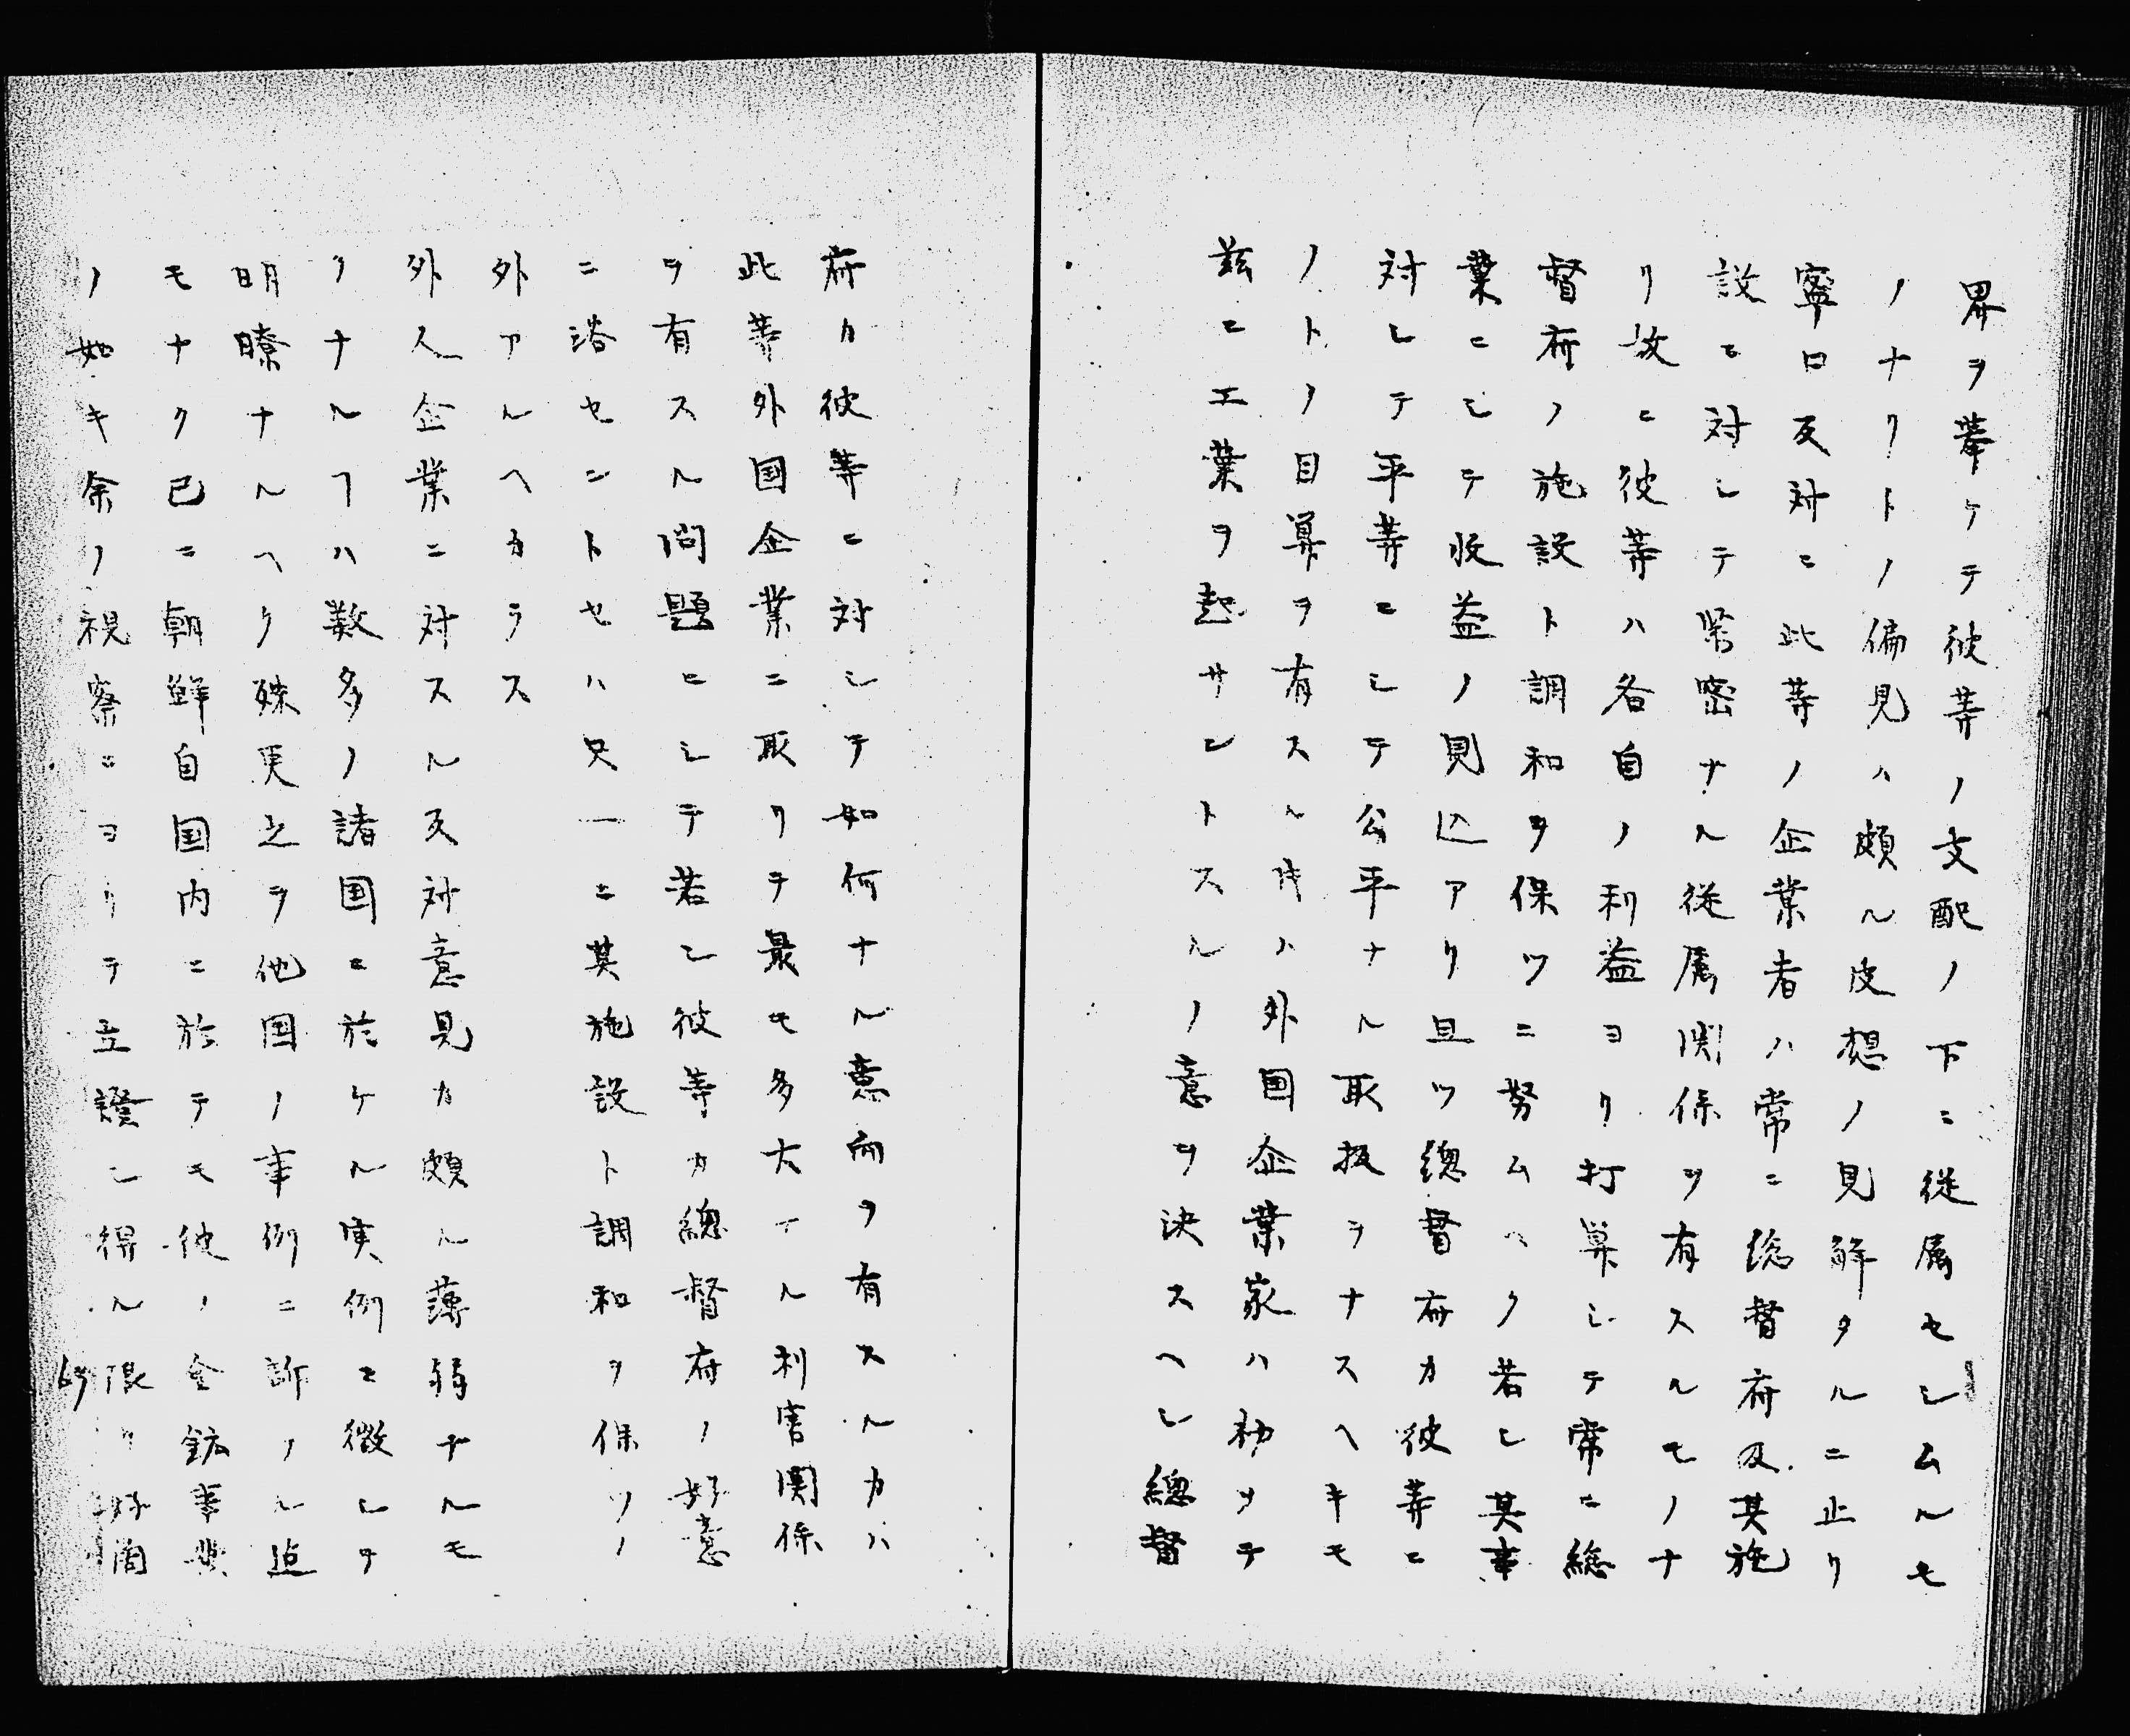 界ヲ挙ケテ彼等ノ支配ノ下ニ従属セシムルモ
ノナリトノ偏見ハ頗ル皮想ノ見解タルニ止リ
寧ロ反対ニ此等ノ企業者ハ常ニ総督府及其施
設ニ対シテ緊密ナル従属関係ヲ有スルモノナ
リ故ニ彼等ハ各自ノ利益ヨリ打算シテ常ニ総
督府ノ施設ト調和ヲ保ツニ努ムヘク若シ其事
業ニシテ収益ノ見込アリ且ツ總督府カ彼等ニ
対シテ平等ニシテ公平ナル取扱ヲナスヘキモ
ノトノ目算ヲ有スル時ハ外国企業家ハ初メテ
茲ニ工業ヲ起サントスルノ意ヲ決スヘシ總督
府カ彼等ニ対シテ如何ナル意向ヲ有スルカハ
此等外国企業ニ取リテ最モ多大ナル利害関係
ヲ有スル問題ニシテ若シ彼等カ總督府ノ好意
ニ浴セントセハ只一ニ其施設ト調和ヲ保ツノ
外アルヘカラス
外人企業ニ対スル反対意見カ頗ル薄弱ナルモ
ノナルヿハ数多ノ諸国ニ於ケル実例ニ徴シテ
明瞭ナルヘク殊更之ヲ他国ノ事例ニ訴フル迄
モナク已ニ朝鮮自国内ニ於テモ彼ノ金鉱事業
ノ如キ余ノ視察ニヨリテ立證シ得ル限リ好箇